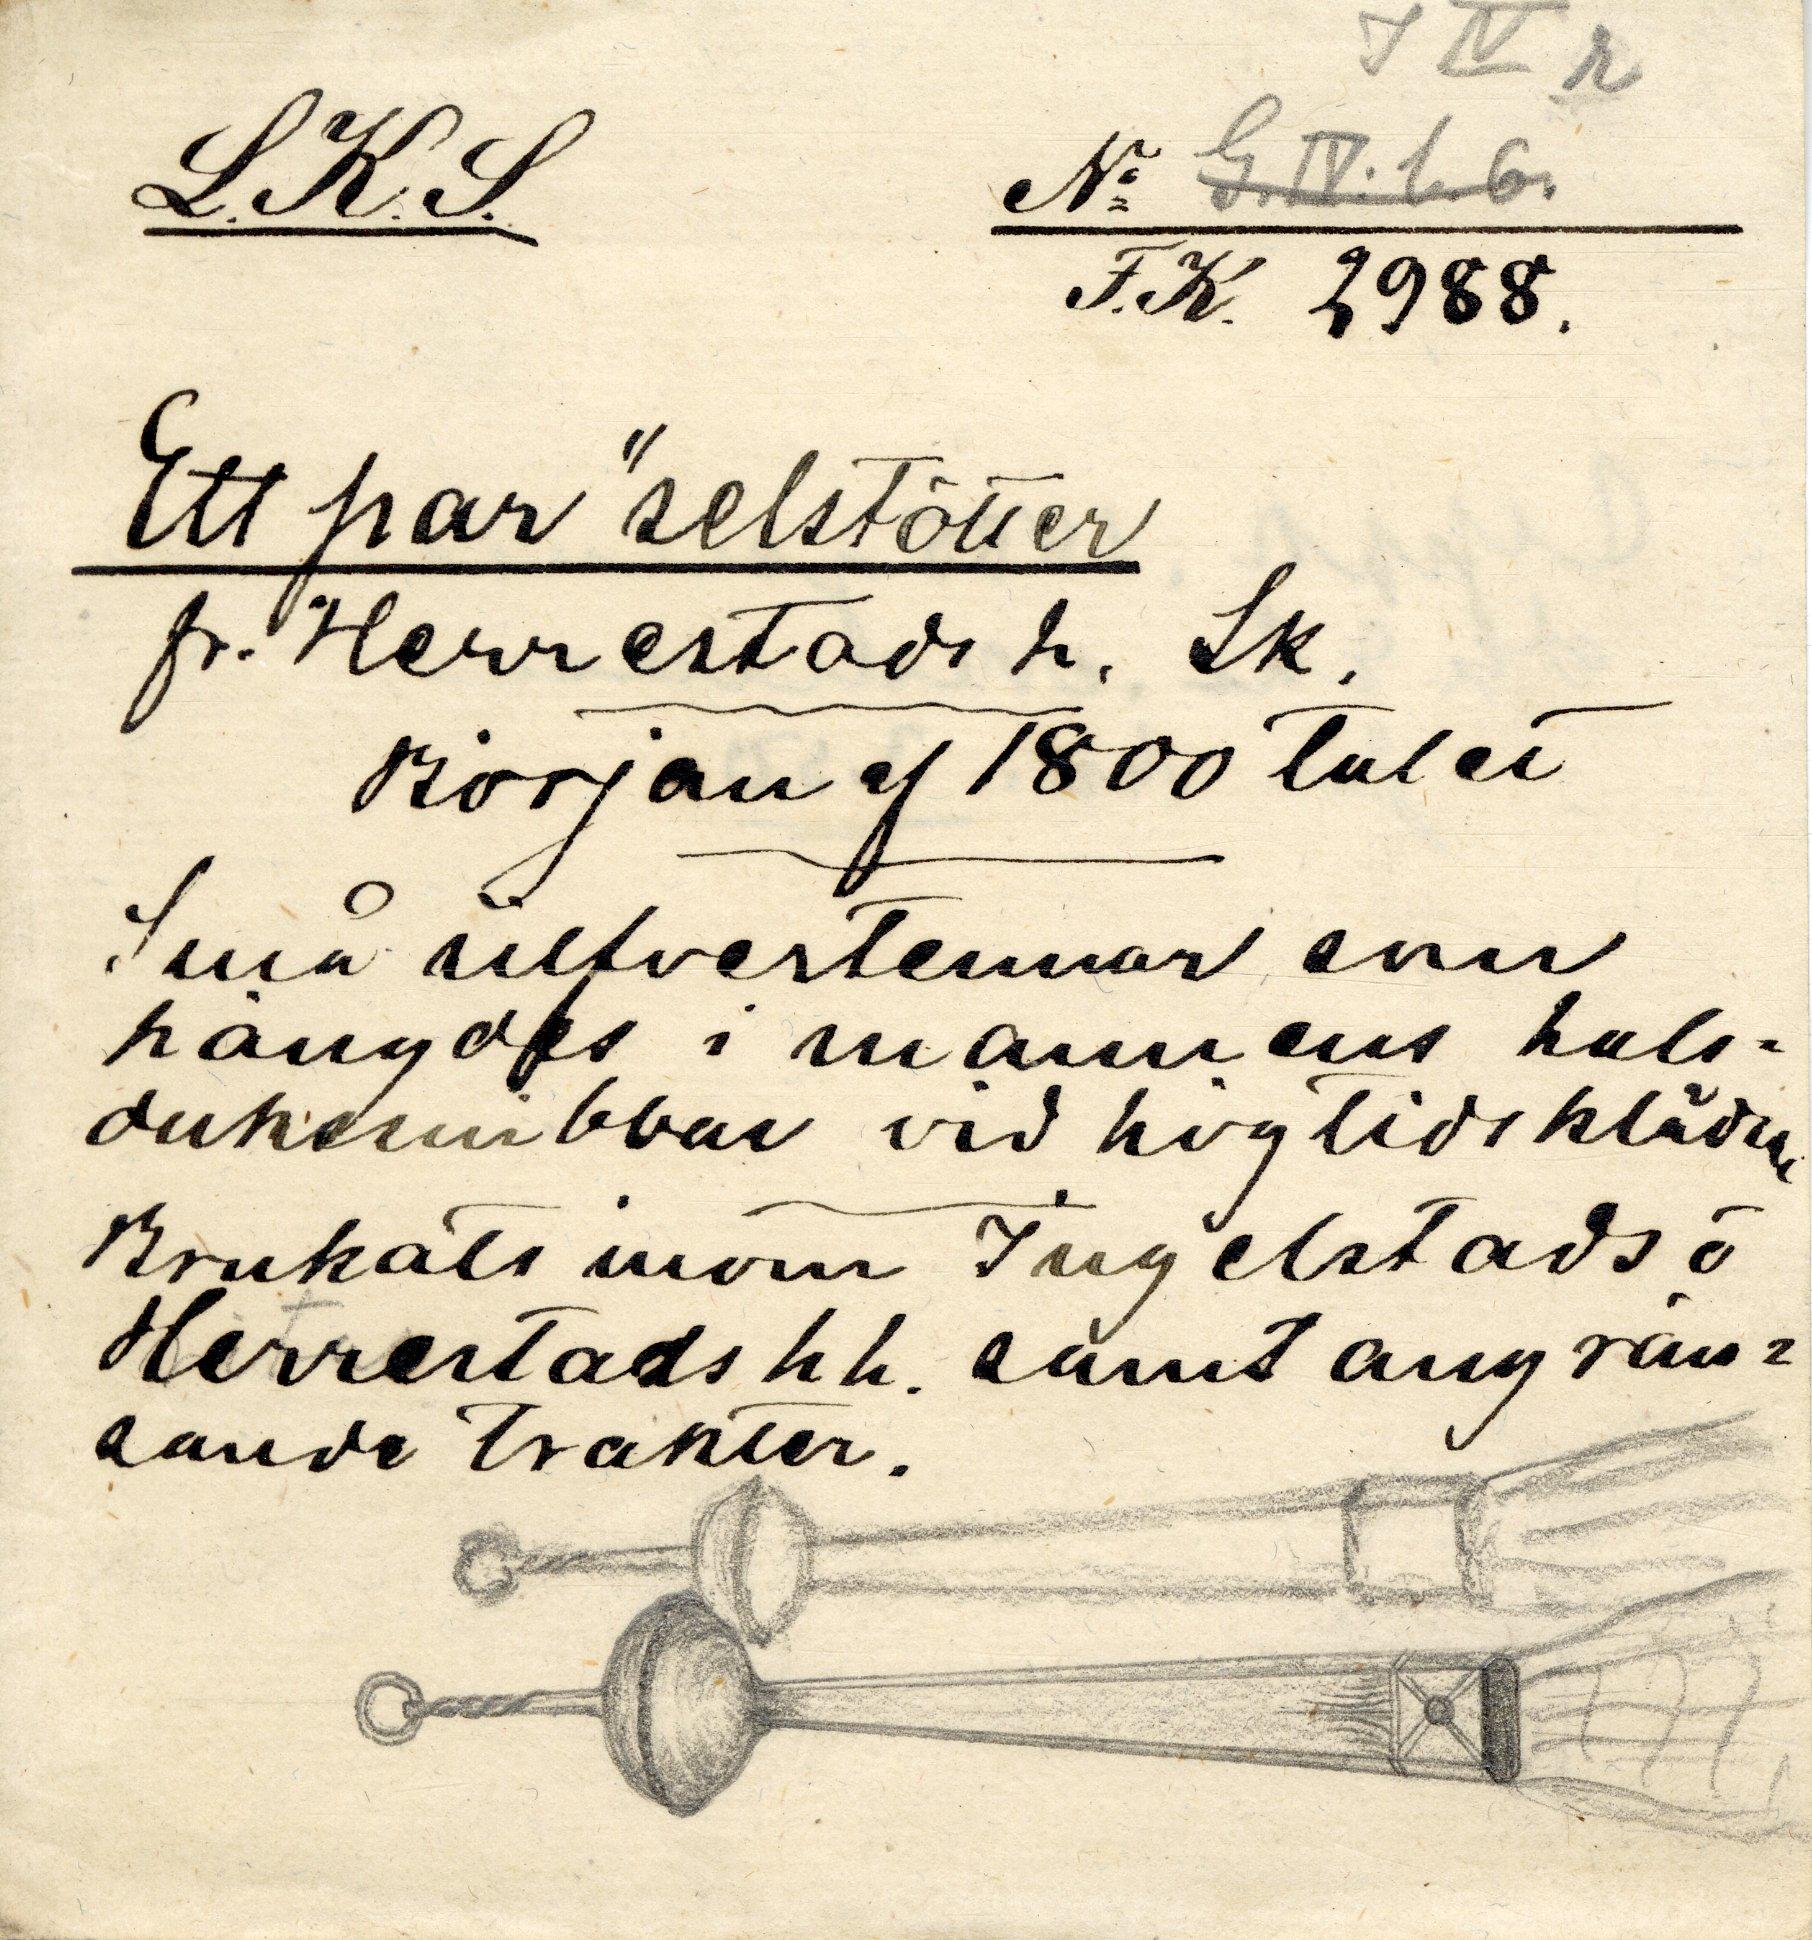 I IV r
L.K.S.
No G.IV.b.6.
F.K. 2988.
Ett par "selstötter
fr. Herrestads h. Sk.
Början af 1800 talet
Små silfverstennar som
hängdes i mannens hals-
duksnibbar vid högtidsklädn.
Brukats inom Ingelstads o
Herrestads hh. samt angrän-
sande trakter.